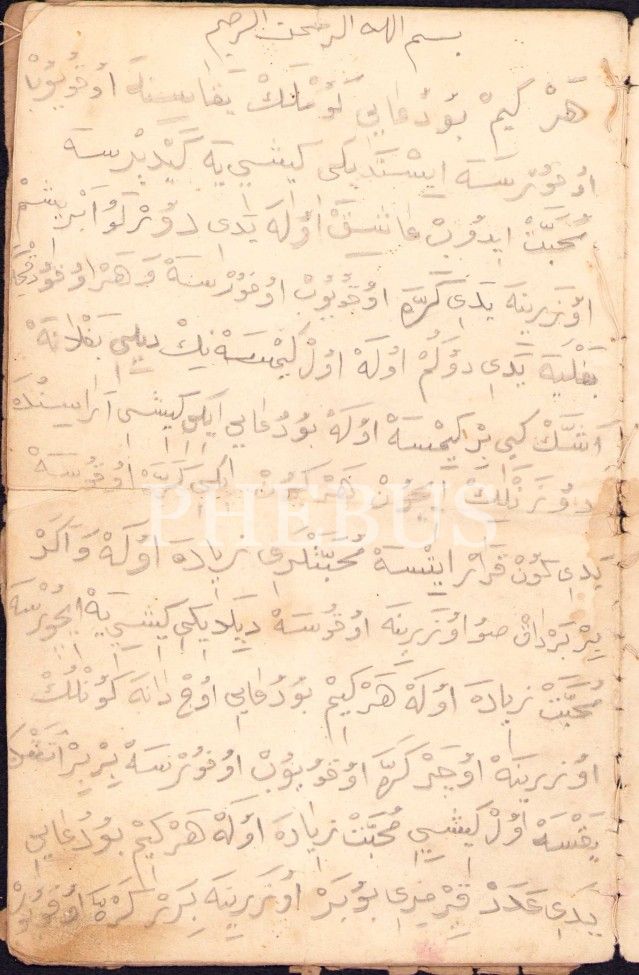 بسم الله الرحمن الرحيم
هَرْ كِيمْ بُودُعَايِي كُومْلَكْ يَقَاسِنَهَ اُوقُيُوبْ
اُوقُوْرسَهَ اِيسْتَدِيكِى كِيشِىيَهَ كَيْدِيرْسَهَ
مُحَبَّتْ ايدُوبْ عَاشِقْ اُولَهَ يَدِى دُوْرْلُو اَبْرِيشِمْ
اُوزَرِينَهَ يَدِى كَرَّهَ اُوقُيُوبْ اُوفُوْرسَهْ وَ هَرْ اُوفُودُقْجَهَ
بَغْلَيَهَ يَدِى دُوكُمْ اُولَهْ اُولْ كِيمْسَهْ نِكْ دِيلِى بَغْلَانَهْ
اَشَّكْ كِبِى بِرْ كِيمْسَهْ اُولَهْ بُودُعَايِى اِيكِى كِيشِى اَرَاسِنْدَهَ
دُوزَنْلِكْ اِيچُونْ هَرْ كُونْ اِكِى كَرَّهَ اُوقُسَهْ
يَدِى كُونْ قَرَارْ اِيتْسَهْ مُحَبَّتْلَرِى زِيَادَهَ اُولَهْ وَ اَكَرْ
بِيرْ بَرْدَاقْ صُو اُوزَرِينَهَ اُوقُسَهْ دِيلَدِيكِى كِيشِىيَهْ اِيچُورْسَهَ
مُحَبَّتْ زِيَادَهَ اُولَهْ هَرْ كِيمْ بُودُعَايِى اُوچْ دَانَهَ كُونْلُكْ
اُوزَرِينَهْ اُوچَرْ كَرَّهَ اُوقُيُوبْ اُوفُوْرسَهْ بِرْ بِرْ اَتَشْدَهَ
يَقْسَهْ اُولْ كِيشِى مُحَبَّتْ زِيَادَهَ اُولَهْ هَرْ كِيمْ بُودُعَايِى
يَدِى عَدَدْ قِيرْمِزِى بُوبَرْ اُوزَرِينَهَ بِرَرْ كَرَّهَ اُوقُيُوبْ
PHEBUS